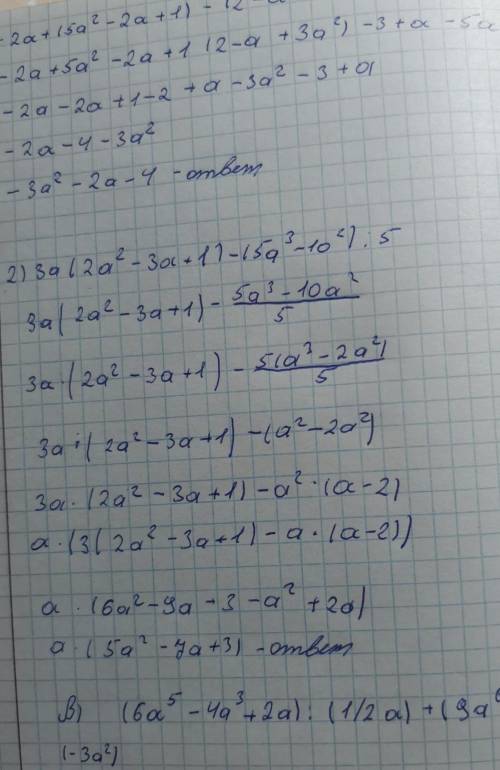 -2a+(5a²-2a+1)-(2-a
-2a+5a²-2a+1(2-a+3a²)-3+a-5a
-2a-2a+1-2+a-3a²-3+a
-2a-4-3a²
-3a²-2a-4 -ответ
2) 3a(2a²-3a+1)-(5a³-10²):5
3a(2a²-3a+1)-\frac{5a³-10a²}{5}
3a·(2a²-3a+1)-\frac{5(a³-2a²)}{5}
3a·(2a²-3a+1)-(a²-2a²)
3a·(2a²-3a+1)-a²·(a-2)
a·(3(2a²-3a+1)-a·(a-2))
a·(6a²-9a-3-a²+2a)
a·(5a²-7a+3) -ответ
в) (6a⁵-4a³+2a):(1/2a)+(9a⁶
(-3a²)